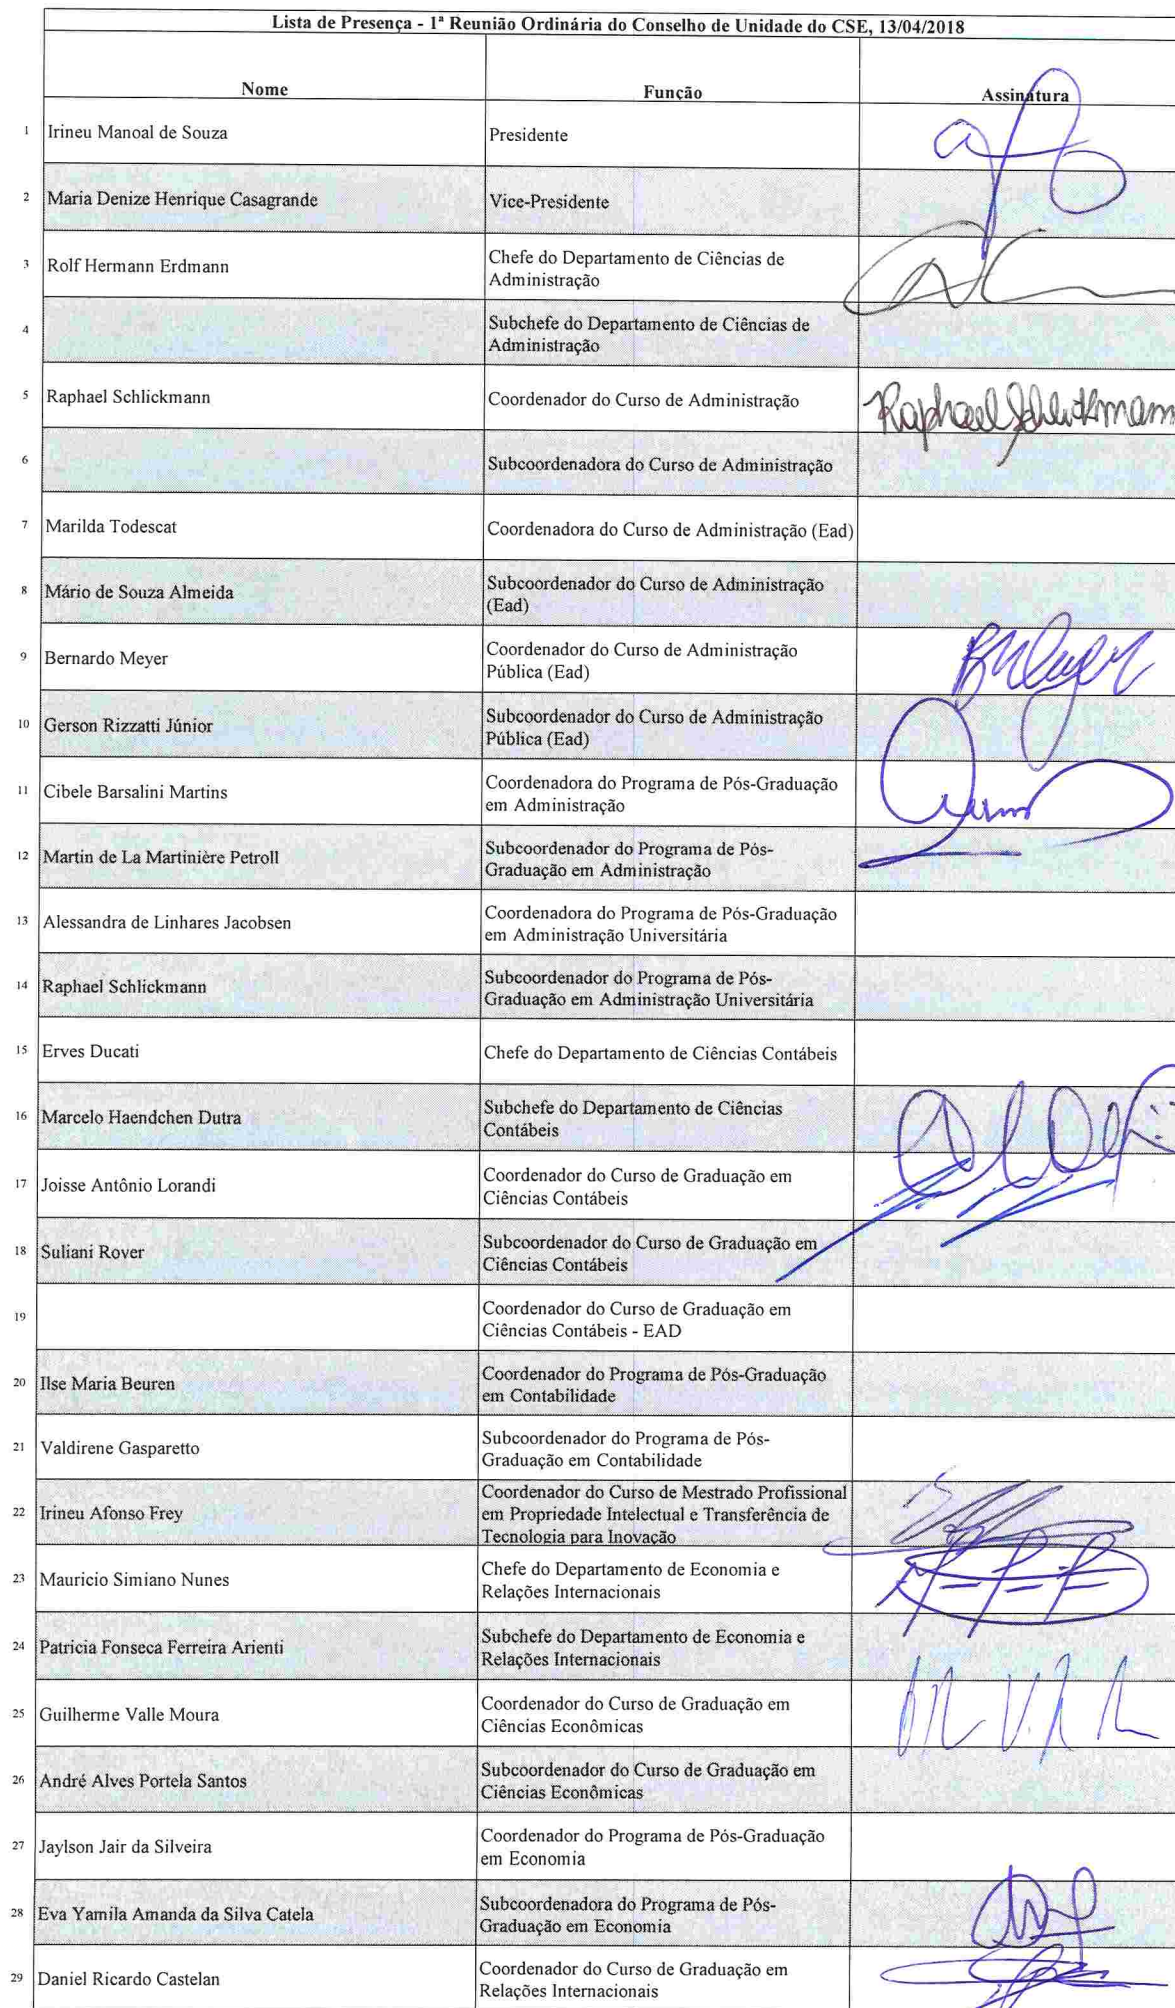 Lista de Presença - 1ª Reunião Ordinária do Conselho de Unidade do CSE, 13/04/2018
Nome Função Assinatura
1 Irineu Manoal de Souza Presidente
2 Maria Denize Henrique Casagrande Vice-Presidente
3 Rolf Hermann Erdmann Chefe do Departamento de Ciências de
Administração
4 Subchefe do Departamento de Ciências de
Administração
5 Raphael Schlickmann Coordenador do Curso de Administração Raphael Schlickmann
6 Subcoordenadora do Curso de Administração
7 Marilda Todescat Coordenadora do Curso de Administração (Ead)
8 Mário de Souza Almeida Subcoordenador do Curso de Administração
(Ead)
9 Bernardo Meyer Coordenador do Curso de Administração
Pública (Ead)
10 Gerson Rizzatti Júnior Subcoordenador do Curso de Administração
Pública (Ead)
11 Cibele Barsalini Martins Coordenadora do Programa de Pós-Graduação
em Administração
12 Martin de La Martinière Petroll Subcoordenador do Programa de Pós-
Graduação em Administração
13 Alessandra de Linhares Jacobsen Coordenadora do Programa de Pós-Graduação
em Administração Universitária
14 Raphael Schlickmann Subcoordenador do Programa de Pós-
Graduação em Administração Universitária
15 Erves Ducati Chefe do Departamento de Ciências Contábeis
16 Marcelo Haendchen Dutra Subchefe do Departamento de Ciências
Contábeis
17 Joisse Antônio Lorandi Coordenador do Curso de Graduação em
Ciências Contábeis
18 Suliani Rover Subcoordenador do Curso de Graduação em
Ciências Contábeis
19 Coordenador do Curso de Graduação em
Ciências Contábeis - EAD
20 Ilse Maria Beuren Coordenador do Programa de Pós-Graduação
em Contabilidade
21 Valdirene Gasparetto Subcoordenador do Programa de Pós-
Graduação em Contabilidade
22 Irineu Afonso Frey Coordenador do Curso de Mestrado Profissional
em Propriedade Intelectual e Transferência de
Tecnologia para Inovação
23 Mauricio Simiano Nunes Chefe do Departamento de Economia e
Relações Internacionais
24 Patricia Fonseca Ferreira Arienti Subchefe do Departamento de Economia e
Relações Internacionais
25 Guilherme Valle Moura Coordenador do Curso de Graduação em
Ciências Econômicas
26 André Alves Portela Santos Subcoordenador do Curso de Graduação em
Ciências Econômicas
27 Jaylson Jair da Silveira Coordenador do Programa de Pós-Graduação
em Economia
28 Eva Yamila Amanda da Silva Catela Subcoordenadora do Programa de Pós-
Graduação em Economia
29 Daniel Ricardo Castelan Coordenador do Curso de Graduação em
Relações Internacionais